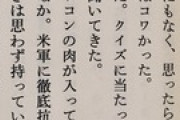 にもなく、思ったら
はコワかった。
。クイズに当たっ
聞いてきた。
コンの肉が入って
るか。米軍に徹底抗
きは思わず持ってい